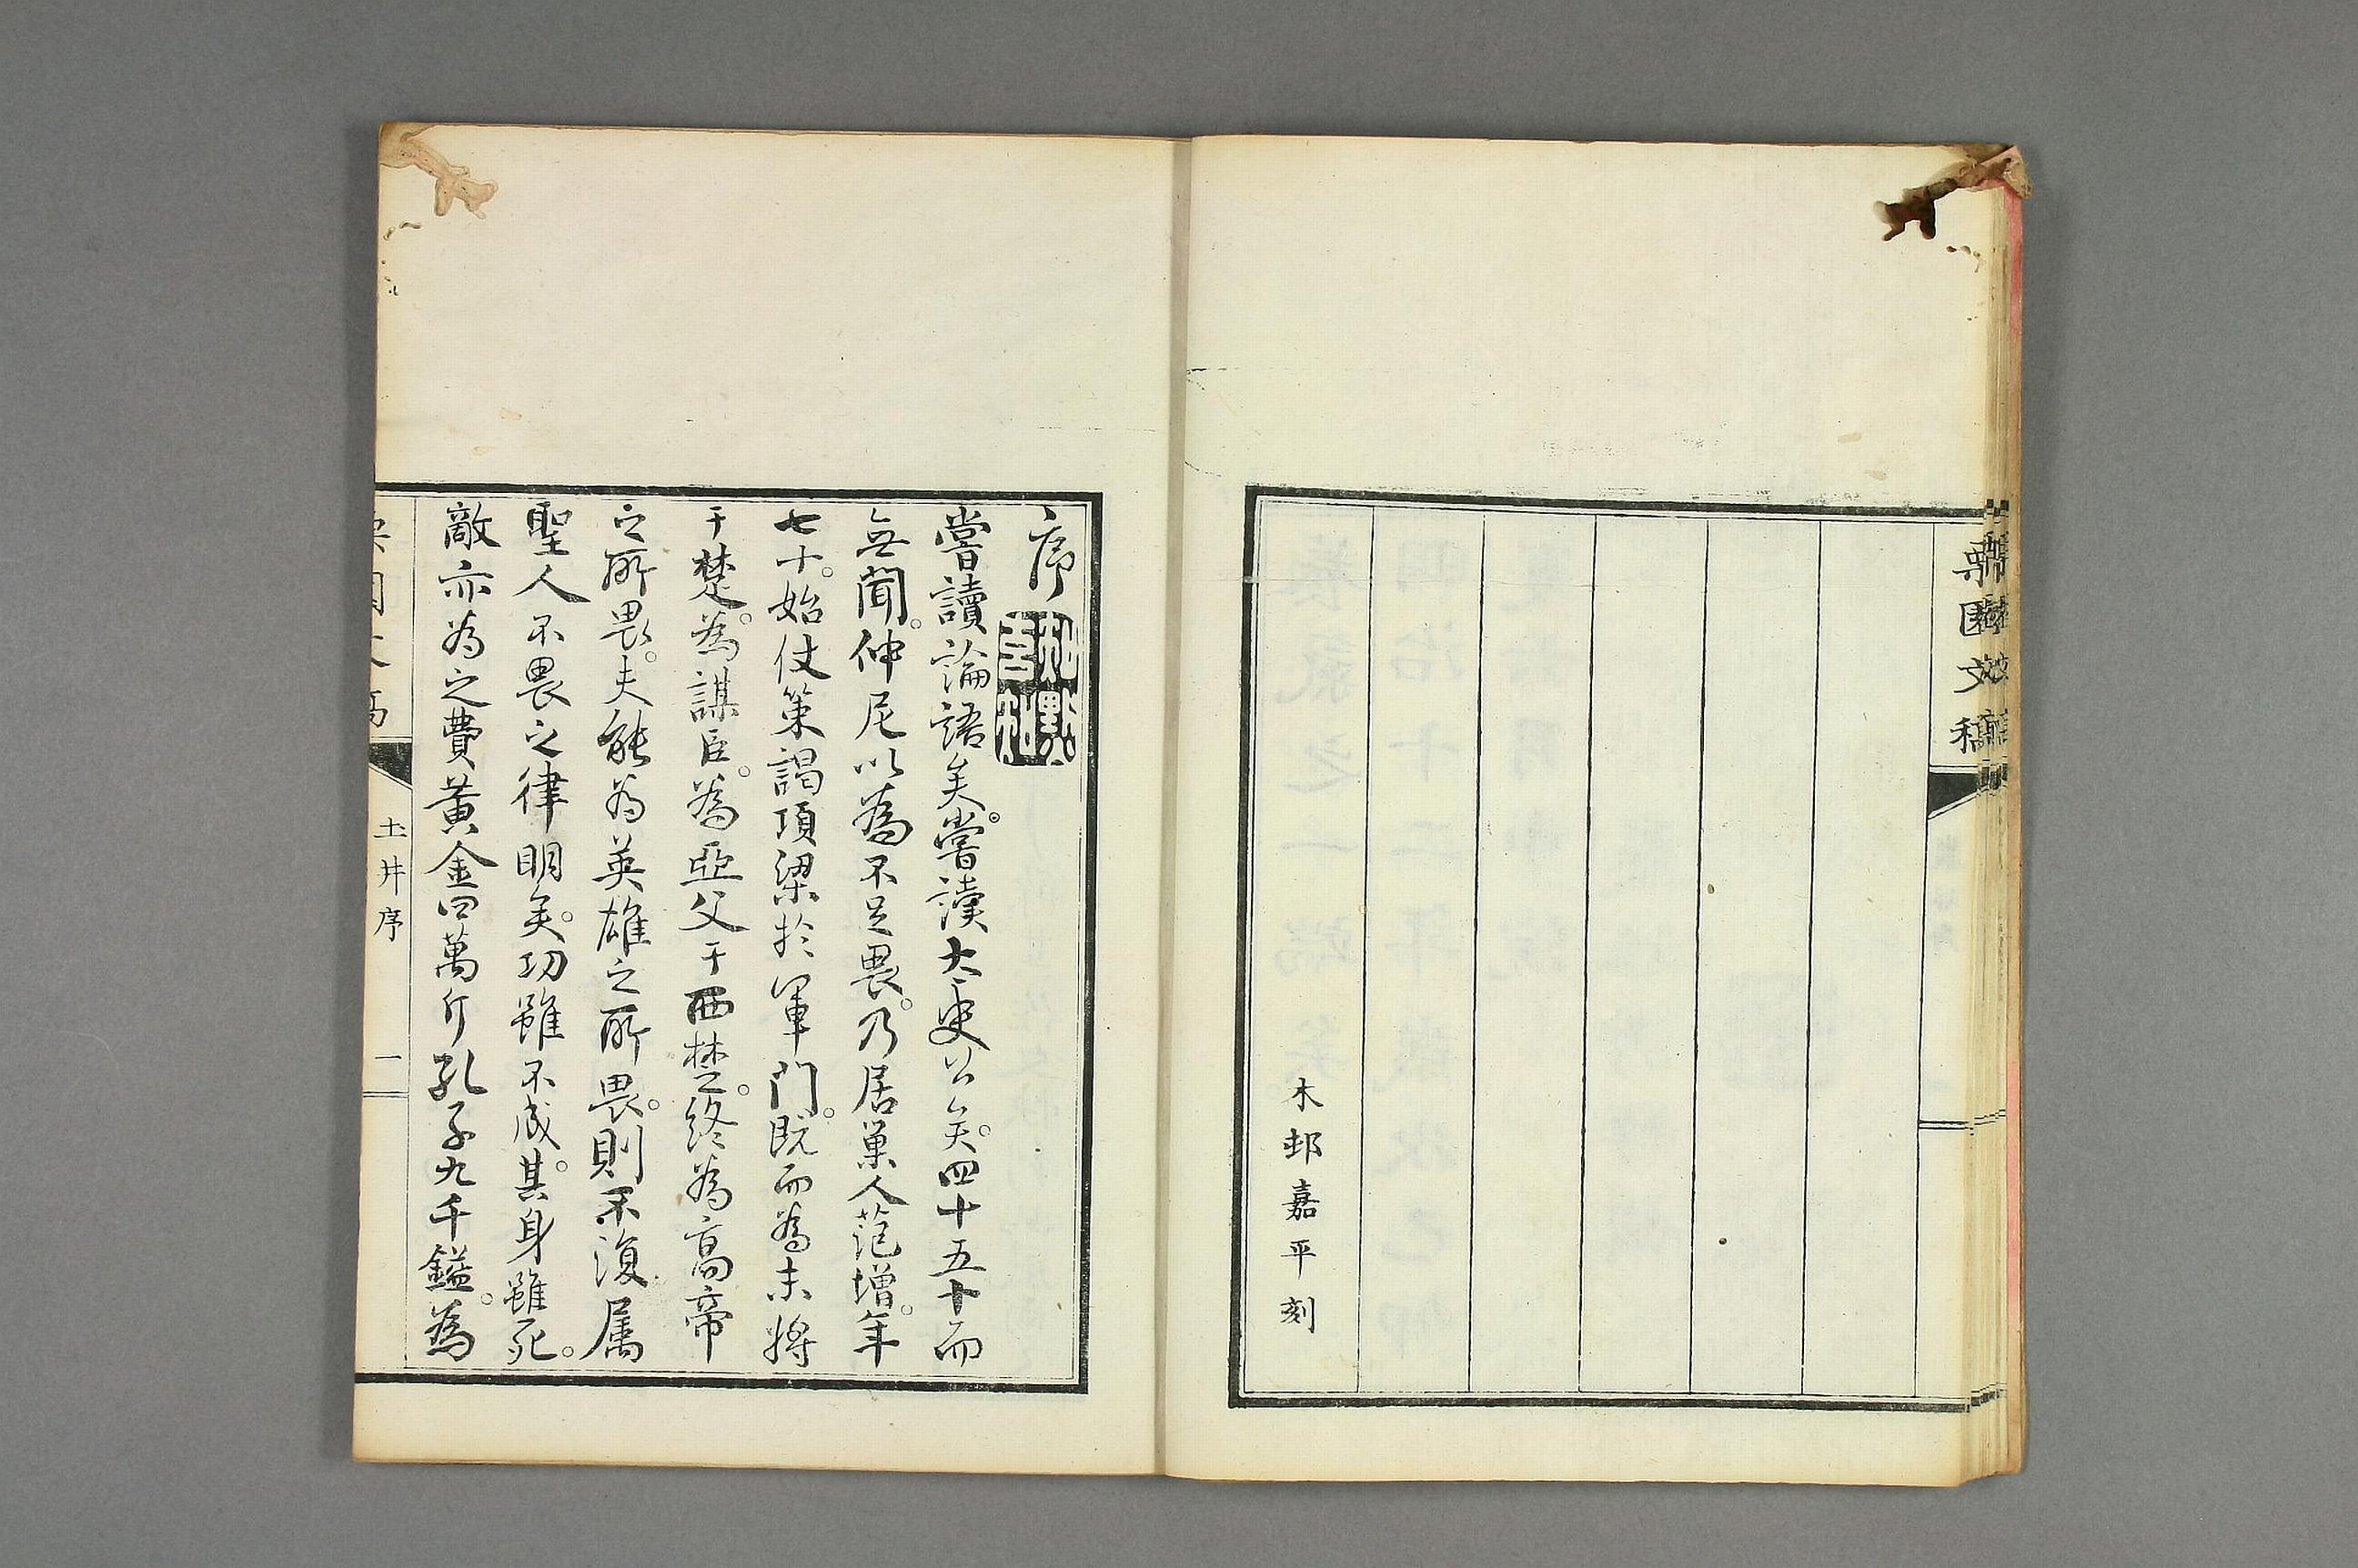 栗園文稿
木邨嘉平刻
序
嘗讀論語矣。嘗讀太史公矣。四十五十而
無聞。仲尼以為不足畏。乃居巢人范增。年
七十。始仗策謁項梁於軍門。既而為末將
于楚。為謀臣。為亞父于西楚。終為高帝
之所畏。夫能為英雄之所畏。則不復属
聖人不畏之律明矣。功雖不成。其身雖死。
敵亦為之費黃金四萬斤孔子九千鎰。為
土井序
一